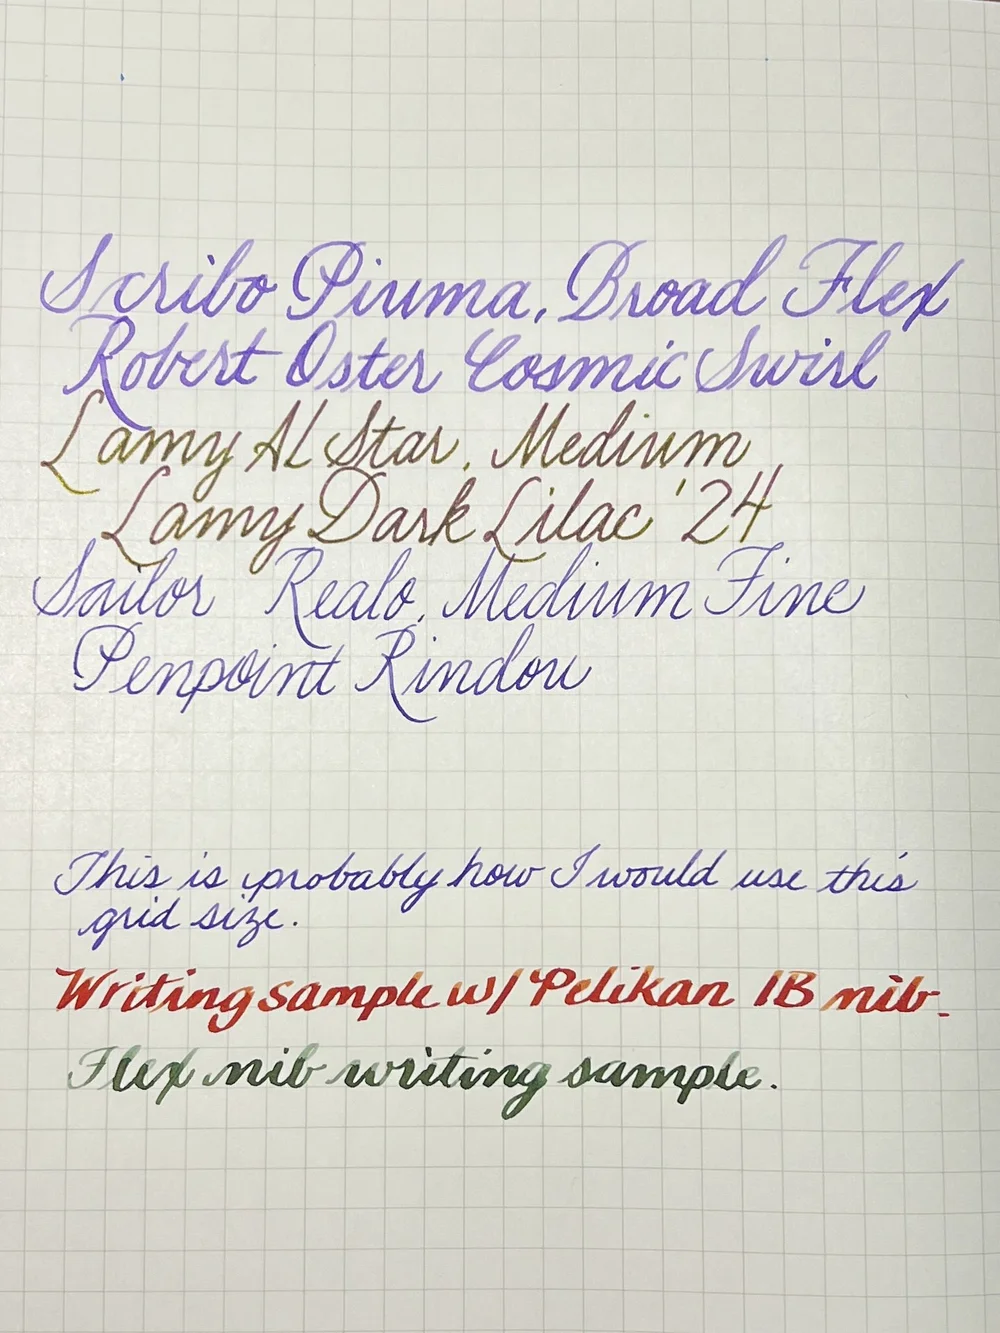 Scribo Piuma, Broad Flex
Robert Oster Cosmic Swirl
Lamy AL Star, Medium
Lamy Dark Lilac '24
Sailor Realo, Medium Fine
Penpoint Rindou
This is probably how I would use this
grid size.
Writing sample w/ Pelikan IB nib.
Flex nib writing sample.